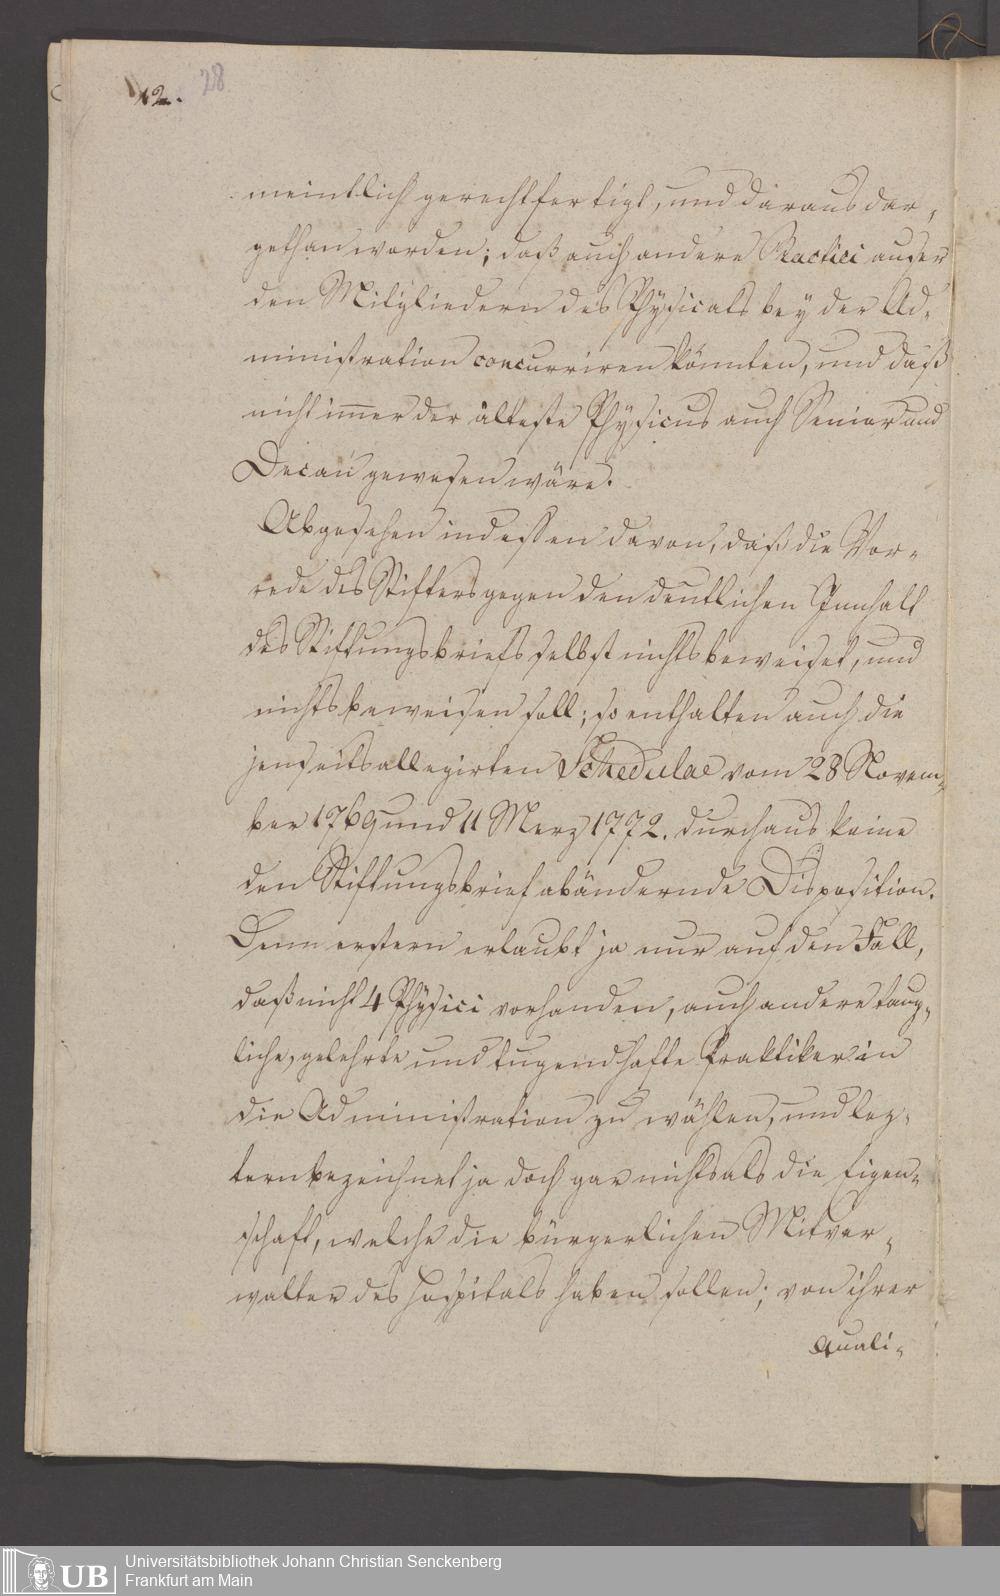 12. 28
meintlich gerechtfertigt, und daraus dar-
gethan worden; daß auch andere Practici auser
den Mitgliedern des Physicats bey der Ad-
ministration concurriren könnten, und daß
nicht immer der älteste Physicus auch Senior und
Decan gewesen wäre.
Abgesehen indessen davon, daß die Vor-
rede des Stifters gegen den deutlichen Innhalt
des Stiftungsbriefs selbst nichts beweiset, und
nichts beweisen soll; so enthalten auch die
jenseits allegirten Schedulae vom 28 Novem-
ber 1769 und 11 Merz 1772. durchaus keine
den Stiftungsbrief abändernde Disposition.
Denn erstern erlaubt ja nur auf den Fall,
daß nicht 4 Physici vorhanden, auch andere taug-
liche, gelehrte und tugendhafte Praktiker in
die Administration zu wählen, und lez-
tern bezeichnet ja doch gar nichts als die Eigen-
schaft, welche die bürgerlichen Mitver-
walter des Hospitals haben sollen; von ihrer
Quali-
UB
Universitätsbibliothek Johann Christian Senckenberg
Frankfurt am Main